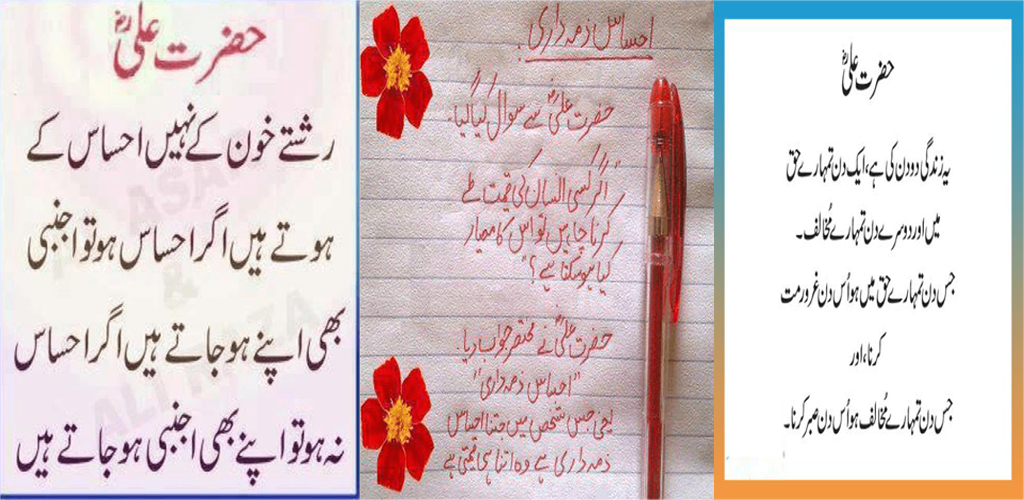 حضرت علیؓ
رشتے خون کے نہیں احساس کے
ہوتے ہیں اگر احساس ہو تو اجنبی
بھی اپنے ہو جاتے ہیں اگر احساس
نہ ہو تو اپنے بھی اجنبی ہو جاتے ہیں
احساس ذمہ داری۔
حضرت علیؓ سے سوال کیا گیا۔
"اگر کسی انسان کی قیمت طے
کرنا چاہیں تو اس کا معیار
کیا ہو سکتا ہے؟"
حضرت علیؓ نے مختصر جواب دیا۔
"احساس ذمہ داری"
یعنی جس شخص میں جتنا احساس
ذمہ داری ہے وہ اتنا ہی قیمتی ہے
حضرت علیؓ
یہ زندگی دو دن کی ہے، ایک دن تمہارے حق
میں اور دوسرے دن تمہارے مُخالف۔
جس دن تمہارے حق میں ہو اُس دن غرور مت
کرنا، اور
جس دن تمہارے مُخالف ہو اُس دن صبر کرنا۔